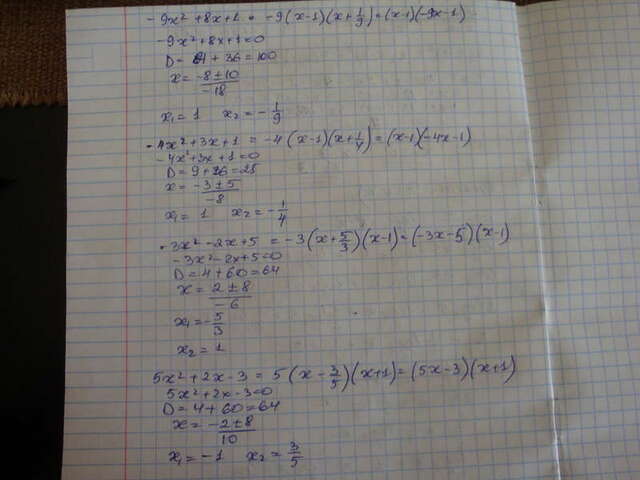 -9x² + 8x + 1 = -9(x-1)(x+1/9) = (x-1)(-9x-1)
-9x² + 8x + 1 = 0
D = 64 + 36 = 100
x = (-8 ± 10)/(-18)
x₁ = 1 x₂ = -1/9
-4x² + 3x + 1 = -4(x-1)(x+1/4) = (x-1)(-4x-1)
-4x² + 3x + 1 = 0
D = 9 + 16 = 25
x = (-3 ± 5)/(-8)
x₁ = 1 x₂ = -1/4
-3x² - 2x + 5 = -3(x+5/3)(x-1) = (-3x-5)(x-1)
-3x² - 2x + 5 = 0
D = 4 + 60 = 64
x = (2 ± 8)/(-6)
x₁ = -5/3
x₂ = 1
5x² + 2x - 3 = 5(x-3/5)(x+1) = (5x-3)(x+1)
5x² + 2x - 3 = 0
D = 4 + 60 = 64
x = (-2 ± 8)/10
x₁ = -1 x₂ = 3/5